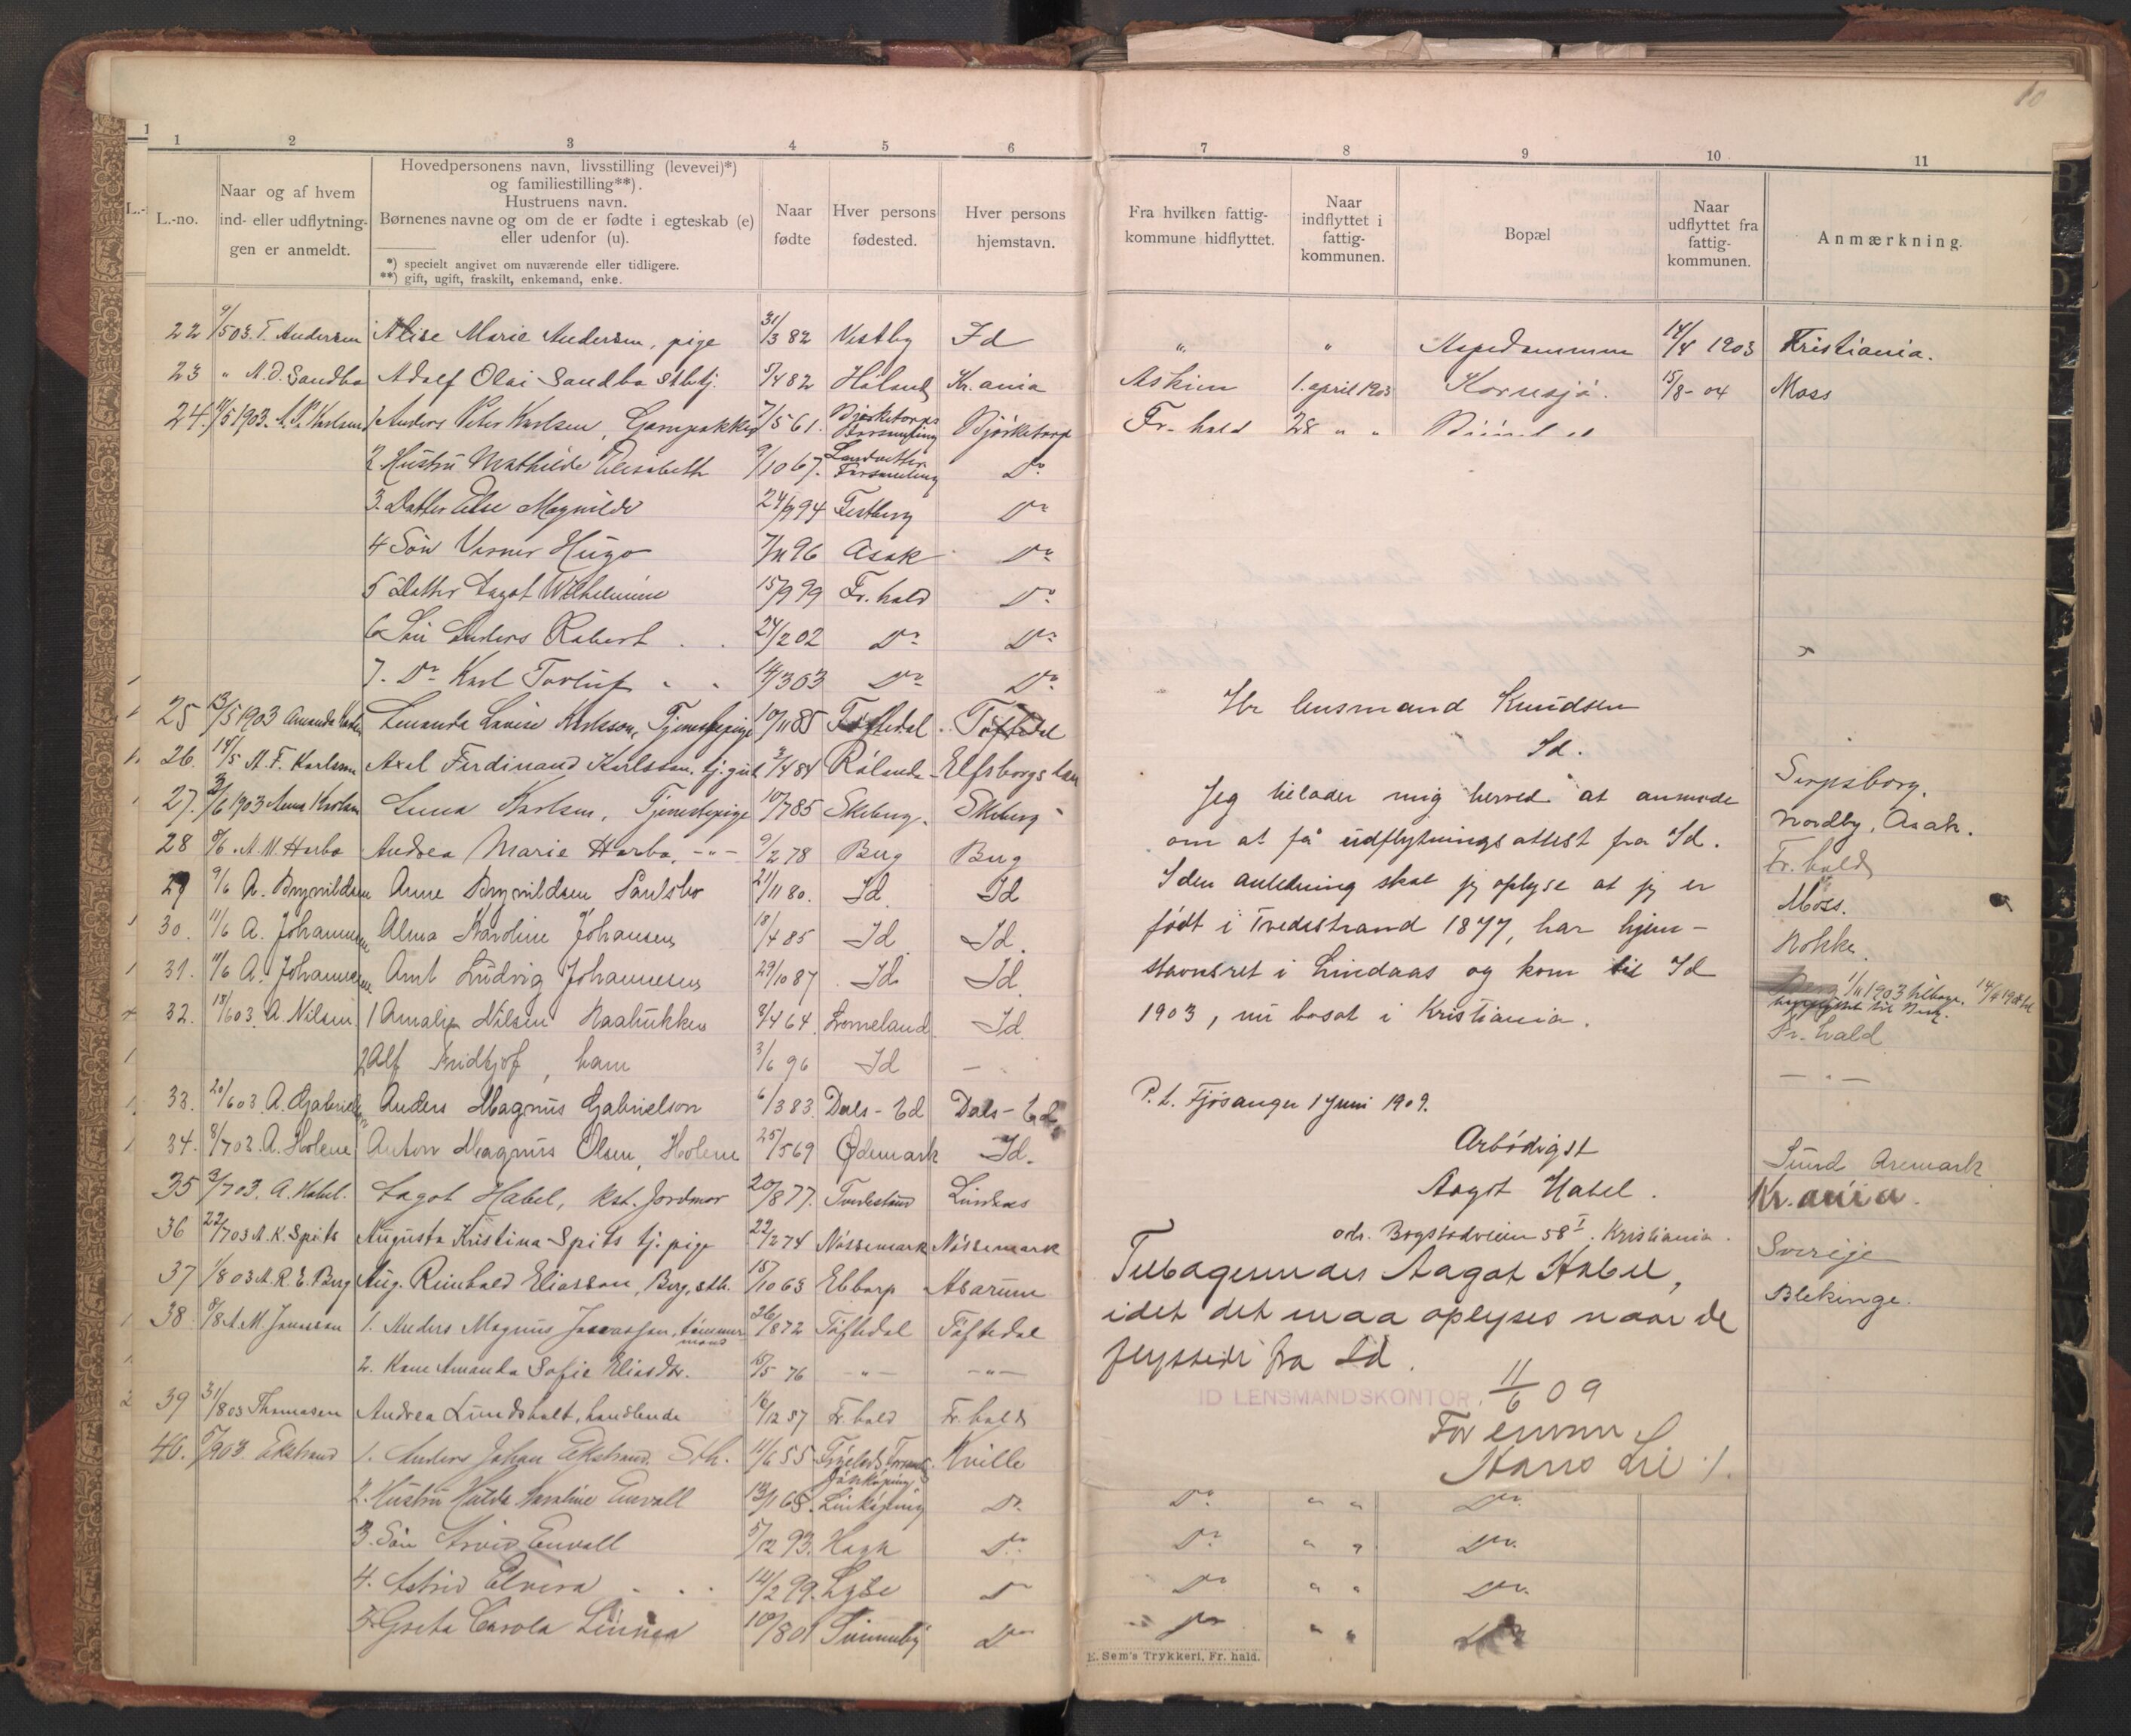 10
1 2 3 4 5 6 7 8 9 10 11
L.-no.
Naar og af hvem
ind- eller udflytnin-
gen er anmeldt.
Hovedpersonens navn, livsstilling (levevei)*)
og familiestilling**).
Hustruens navn.
Børnenes navne og om de er fødte i egteskab (e)
eller udenfor (u).
*) specielt angivet om nuværende eller tidligere.
**) gift, ugift, fraskilt, enkemand, enke.
Naar
fødte
Hver persons
fødested.
Hver persons
hjemstavn.
Fra hvilken fattig-
kommune hidflyttet.
Naar
indflyttet i
fattig-
kommunen.
Bopæl
Naar
udflyttet fra
fattig-
kommunen.
Anmærkning.
22 9/5 03. T. Andersen Alise Marie Andersen, pige 31/3 82 Vestby Id " " Aspedammen 14/4 1903 Kristiania.
23 " A. O. Sandbo Adolf Olai Sandbo stbtj. 5/4 82 Høland Kr.ania Askim 1. april 1903 Kornsjø. 15/8 - 04 Moss
24. 11/5 1903. A. P. Karlsen 1 Anders Peter Karlsen, Garnpakker 7/5 61. Bjørketorps Forsamling Bjørketorp Fr. hald 28 " "
2 Hustru Mathilde Elisabeth 9/10 67. Landvetter Forsamling Do
3. Datter Else Magnilde 24/9 94 Testberg Do
4 Søn Verner Hugo 7/11 96 Asak Do
5 Datter Aagot Wilhelmine 15/9 99 Fr. hald Do
6 Søn Anders Robert 24/2 02 Do Do
7. Do Karl Torluf " " 14/3 03 Do Do
25 13/5 1903 Amanda Lovise Karlsson, Tjenestepige 10/11 85 Töftedal Töftedal
26. 14/5 A. F. Karlsson Axel Ferdinand Karlsson. tj. gut 3/4 84 Rölanda Elfsborgs län
27. 3/6 1903 Anna Karlsen Anna Karlsen, Tjenestepige 10/7 85 Skeberg. Skeberg
28 8/6. A. M. Harbo Andrea Marie Harbo, - " - 9/2 78 Berg Berg
29 9/6 A. Brynildsen Anne Brynildsen Paulsbo 21/11 80. Id Id
30. 11/6 A. Johannesen Alma Karoline Johansen 18/4 85 Id Id
31. 11/6 A. Johannesen Arnt Ludvig Johannesen 29/10 87 Id Id
32. 18/6 03. A. Nilsen 1 Amalie Nilsen Naabukken 8/4 64. Lromeland Id
2 Alf Fridtjof, barn 3/6 96 Id —
33. 20/6 03. A. Gabrielson Anders Magnus Gabrielson 6/3 83. Dals-Ed Dals-Ed
34. 8/7 03. A. Holene Anton Magnus Olsen, Holene 25/5 69 Ødemark Id.
35 3/7 03. A. Habel. Aagot Habel, kst. Jordmor 20/8 77. Tvedestrand Lindaas
36 22/7 03 A. K. Spets Augusta Kristina Spets tj. pige 22/2 74 Nössemark Nössemark
37 1/8 03 A. R. E. Berg Aug. Reinhold Eliasson, Berg, sth. 15/10 63 Ebbarp Asarum
38 8/8 A. M. Jonasson 1. Anders Magnus Jonasson, tömmermand 26/8 72 Töftedal Töftedal
2. Kone Amanda Sofie Eliasdtr. 15/5 76 - " - - " -
39 31/8 03 Thomasen Andrea Lundsholt, handlende 16/12 57 Fr. hald Fr. hald
40. 5/9 03. Ekstrand 1. Anders Johan Ekstrand. Sth. 11/6 55 Jönköping Kville
2. Hustru Hulda Karoline Envall 13/1 65. Linköping Do Do " " Do
3. Søn Arvid Envall 5/12 93. Hagh Do Do " " Do
4. Astrid Elvira " " 14/2 99. Lyse Do Do " " Do
5. Greta Carola Linnea 10/8 01 Svinneby Do Do " " Do
Hr lensmand Knudsen
Id.
Jeg tillader mig herved at anmode
om at få udflytningsattest fra Id.
I den anledning skal jeg oplyse at jeg er
født i Tvedestrand 1877, har hjem-
stavnsret i Lindaas og kom til Id
1903, nu bosat i Kristiania.
P. t. Fjøsanger 1 Juni 1909.
Arbödigst
Aagot Habel.
adr. Bogstadveien 58 I. Kristiania.
Tilbagesendes Aagot Habel,
idet det maa oplyses naar de
flyttede fra Id.
ID LENSMANDSKONTOR, 11/6 09
For lensm.
Hans Lie
Sarpsborg.
Nordby, Asak.
Fr. hald
Moss.
Rokke.
1/11 1903 tilbage.
Fr. hald
— " —
Sund Aremark
Kr.ania.
Sverije
Blekinge.
E. Sem's Trykkeri, Fr. hald.